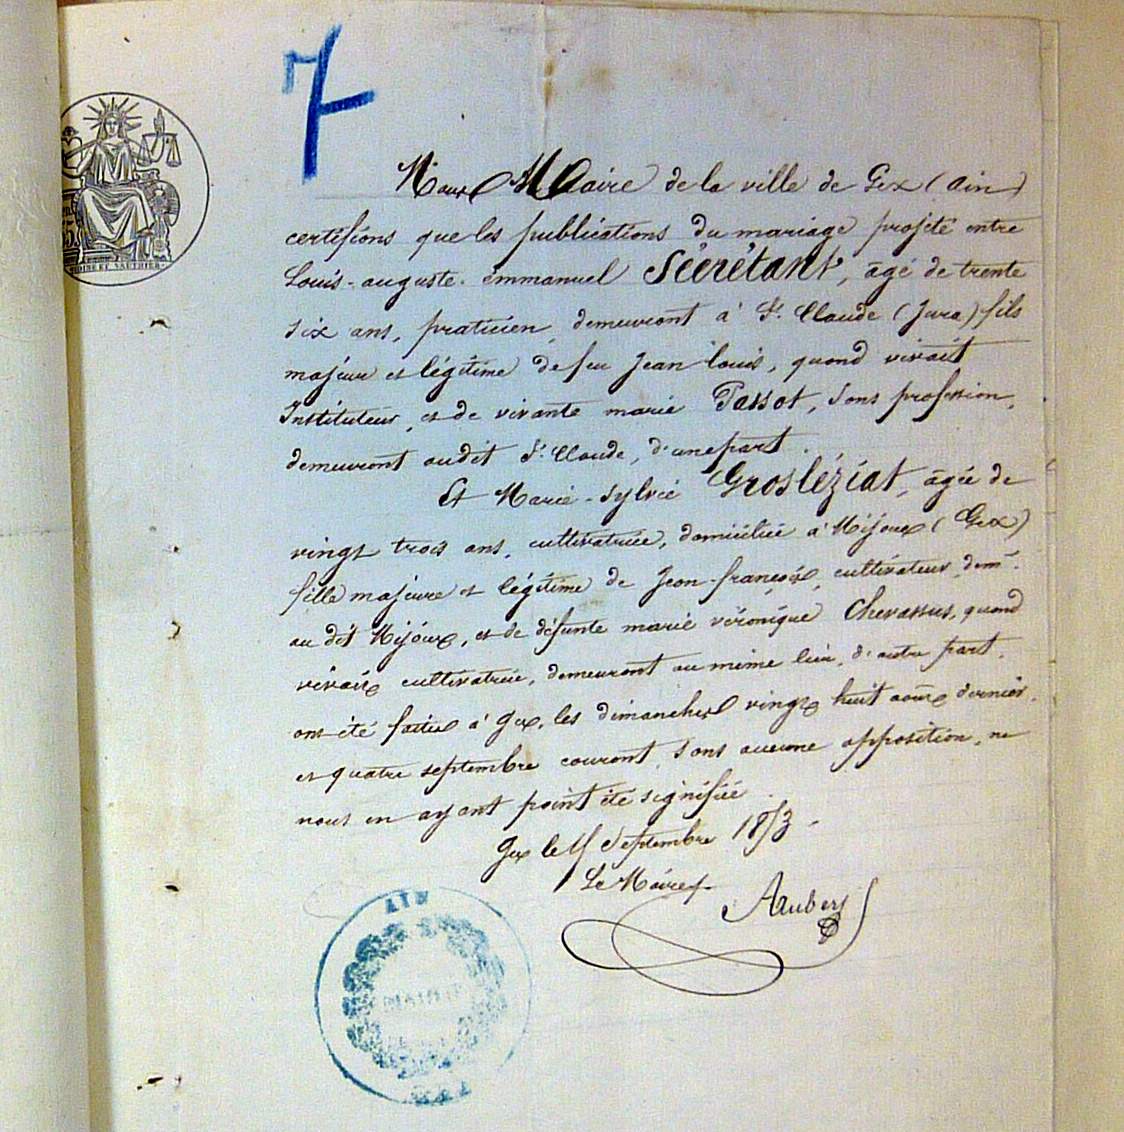 7
Nous Maire de la ville de Gex (Ain)
certifions que les publications du mariage projeté entre
Louis-auguste-emmanuel Sécrétant, âgé de trente
six ans, praticien, demeurant à St. Claude (Jura) fils
majeur et légitime de feu Jean louis, quand vivait
Instituteur, et de vivante marie Passot, sans profession,
demeurant audit St. Claude, d'une part.
Et Marie-Sylvie Grosléziat, âgée de
vingt trois ans, cultivatrice, domiciliée à Mijoux (Gex)
fille majeure et légitime de Jean-françois, cultivateur, demt.
au dit Mijoux, et de défunte marie véronique Chevassus, quand
vivait cultivatrice, demeurant au même lieu, d'autre part,
ont été faites à Gex, les dimanches vingt huit août dernier,
et quatre septembre courant, sans aucune opposition, ne
nous en ayant point été signifiée.
Gex le Septembre 1853.
Le Maire
Aubery
AIN
MAIRIE
DE
GEX